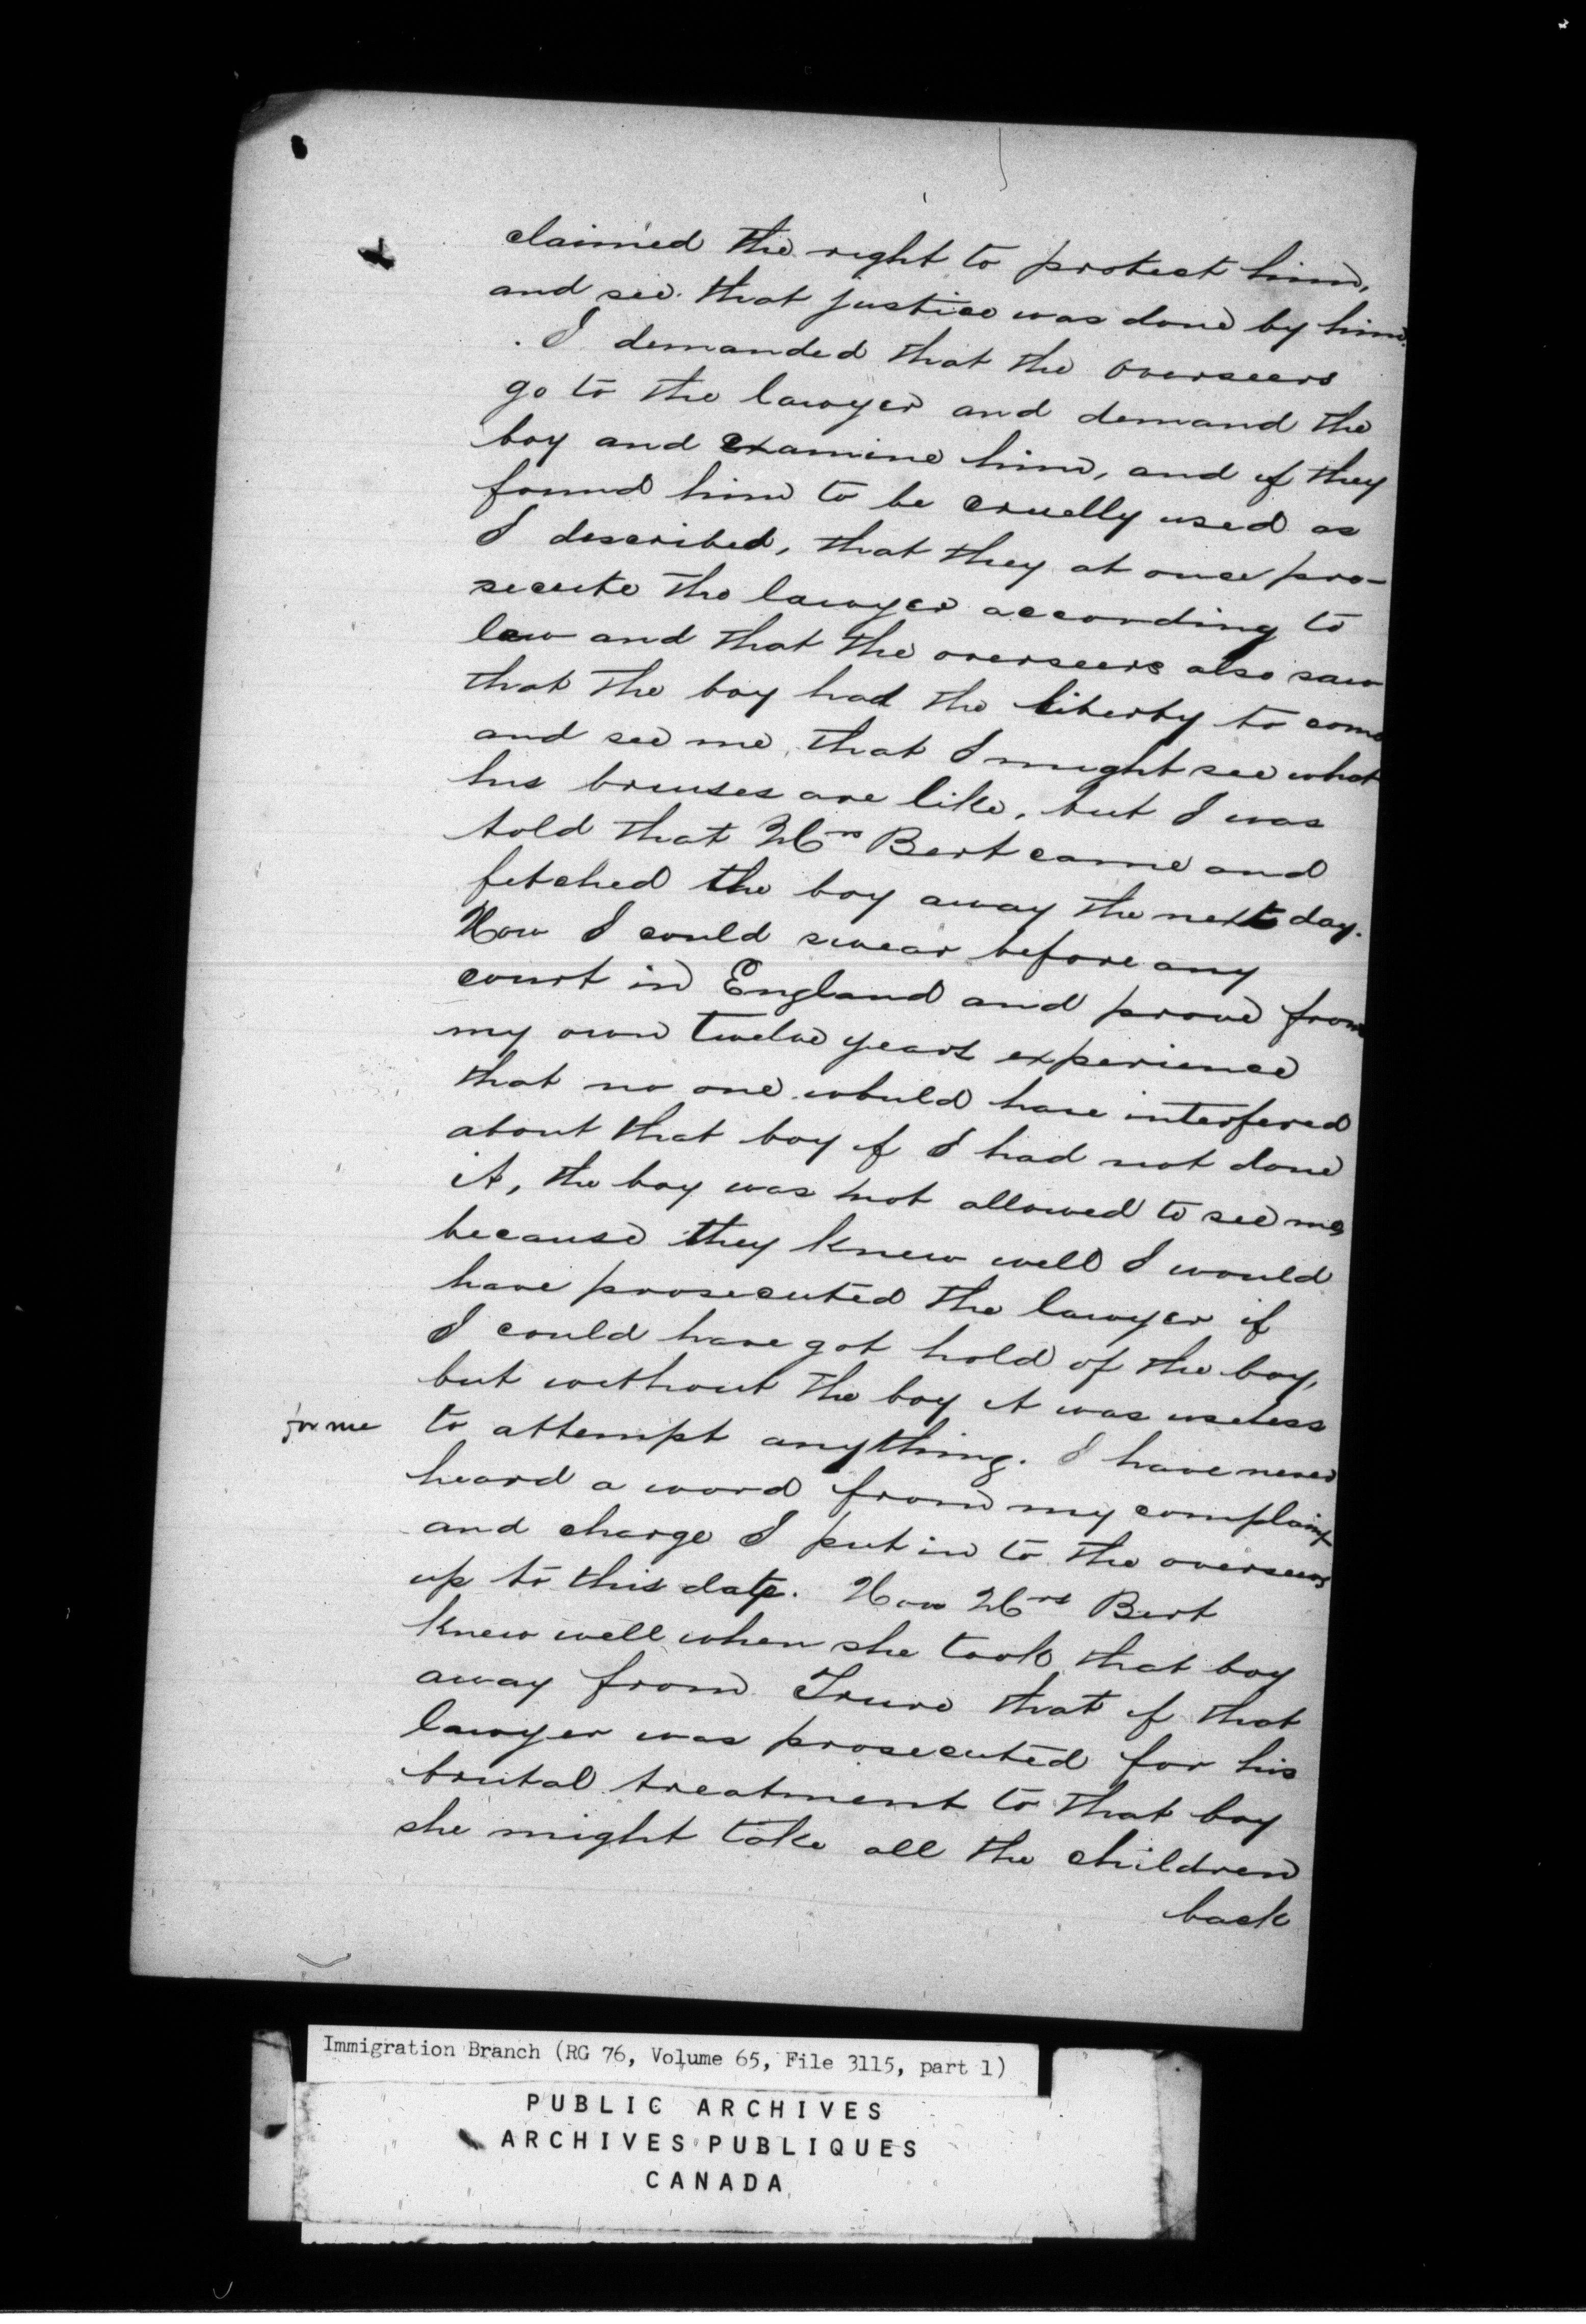 claimed the right to protect him,
and see that justice was done by him.
I demanded that the overseers
go to the lawyer and demand the
boy and examine him, and if they
found him to be cruelly used as
I described, that they at once pro-
secute the lawyer according to
law and that the overseers also saw
that the boy had the liberty to come
and see me, that I might see what
his bruises are like, but I was
told that Mrs Bert came and
fetched the boy away the next day.
Now I could swear before any
court in England and prove from
my own twelve years experience
that no one would have interfered
about that boy if I had not done
it, the boy was not allowed to see me,
because they knew well I would
have prosecuted the lawyer if
I could have got hold of the boy,
but without the boy it was useless
for me to attempt anything. I have never
heard a word from my complaint
and charge I put in to the overseers
up to this date. Now Mrs Birt
knew well when she took that boy
away from Truro that if that
lawyer was prosecuted for his
brutal treatment to that boy
she might take all the children
back
Immigration Branch (RG 76, Volume 65, File 3115, part 1)
PUBLIC ARCHIVES
ARCHIVES PUBLIQUES
CANADA